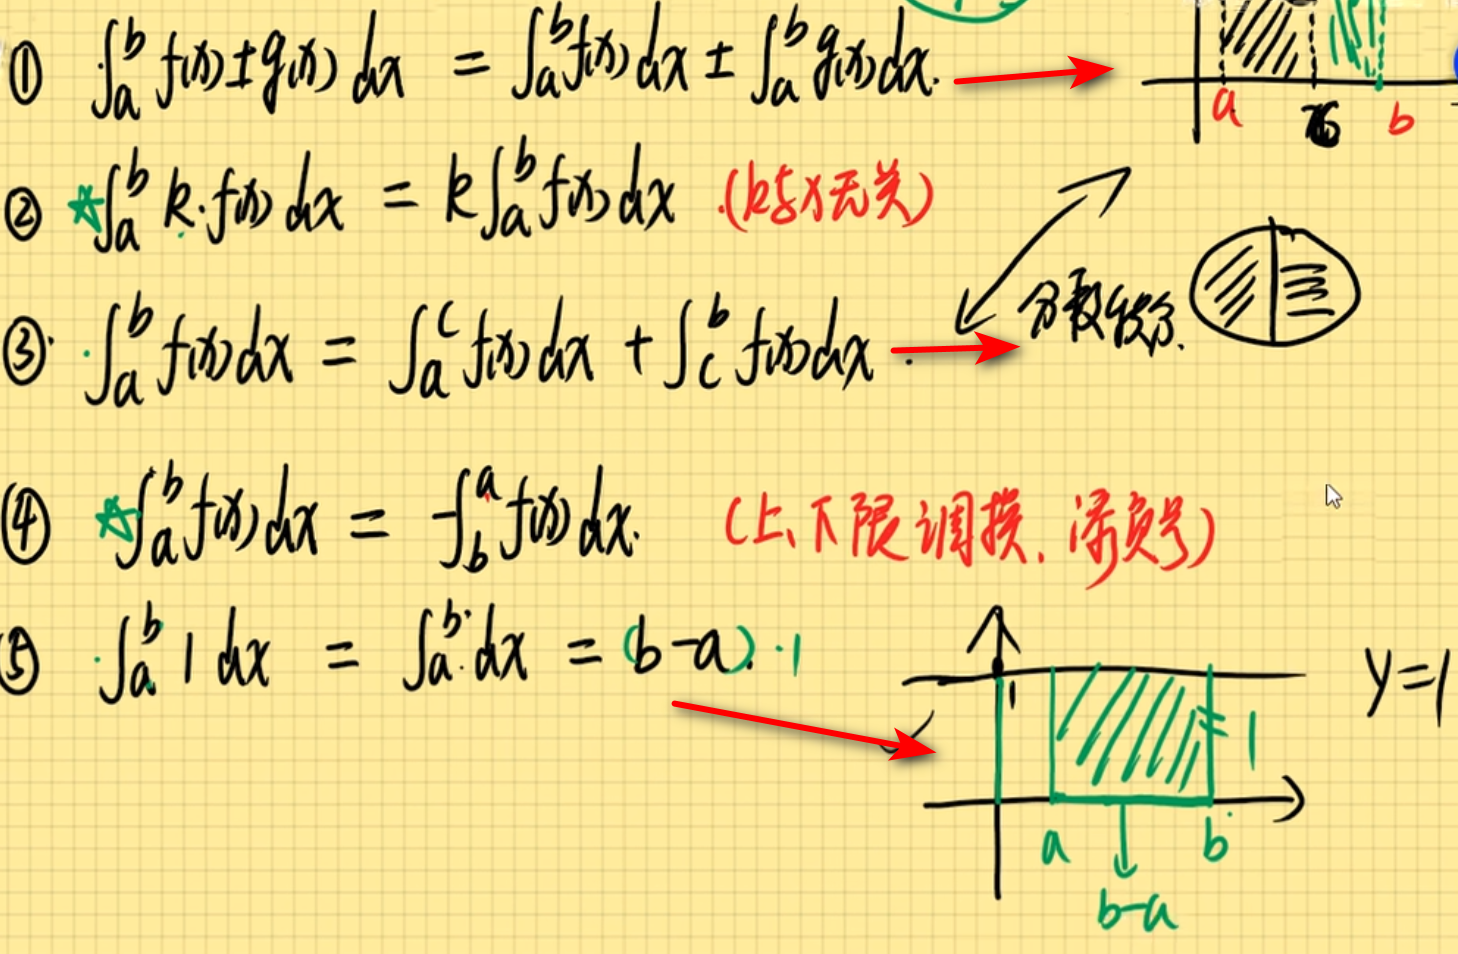 ① ∫ₐᵇ f(x)±g(x) dx = ∫ₐᵇ f(x)dx ± ∫ₐᵇ g(x)dx.
a b
② ☆∫ₐᵇ k·f(x) dx = k∫ₐᵇ f(x)dx (k与x无关)
③ ∫ₐᵇ f(x)dx = ∫ₐᶜ f(x)dx + ∫꜀ᵇ f(x)dx.
分段积分.
④ ☆∫ₐᵇ f(x)dx = -∫_b^a f(x)dx. (上、下限调换.添负号)
⑤ ∫ₐᵇ 1 dx = ∫ₐᵇ dx = (b-a)·1
1 y=1
= 1
a b
b-a